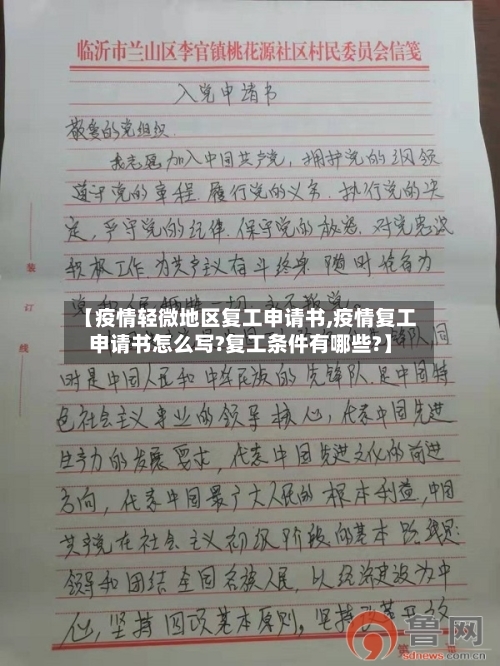 临沂市兰山区李官镇桃花源社区村民委员会信笺
入党申请书
敬爱的党组织
我志愿加入中国共产党，拥护党的纲领
遵守党的章程，履行党的义务，执行党的决
定，严守党的纪律，保守党的秘密，对党忠诚
积极工作，为共产主义奋斗终身，随时准备为
党和人民牺牲一切，永不叛党。
【疫情轻微地区复工申请书,疫情复工
申请书怎么写?复工条件有哪些?】
锋队同
时是中国人民和中华民族的先锋队，是中国特
色社会主义事业的领导核心，代表中国先进
生产力的发展要求，代表中国先进文化的前进
方向，代表中国最广大人民的根本利益，中国
共产党在社会主义初级阶段的基本路线是
领导和团结全国各族人民，以经济建设为中
心，坚持四项基本原则，坚持改革开放
装
订
线
鲁网
sdnews.com.cn